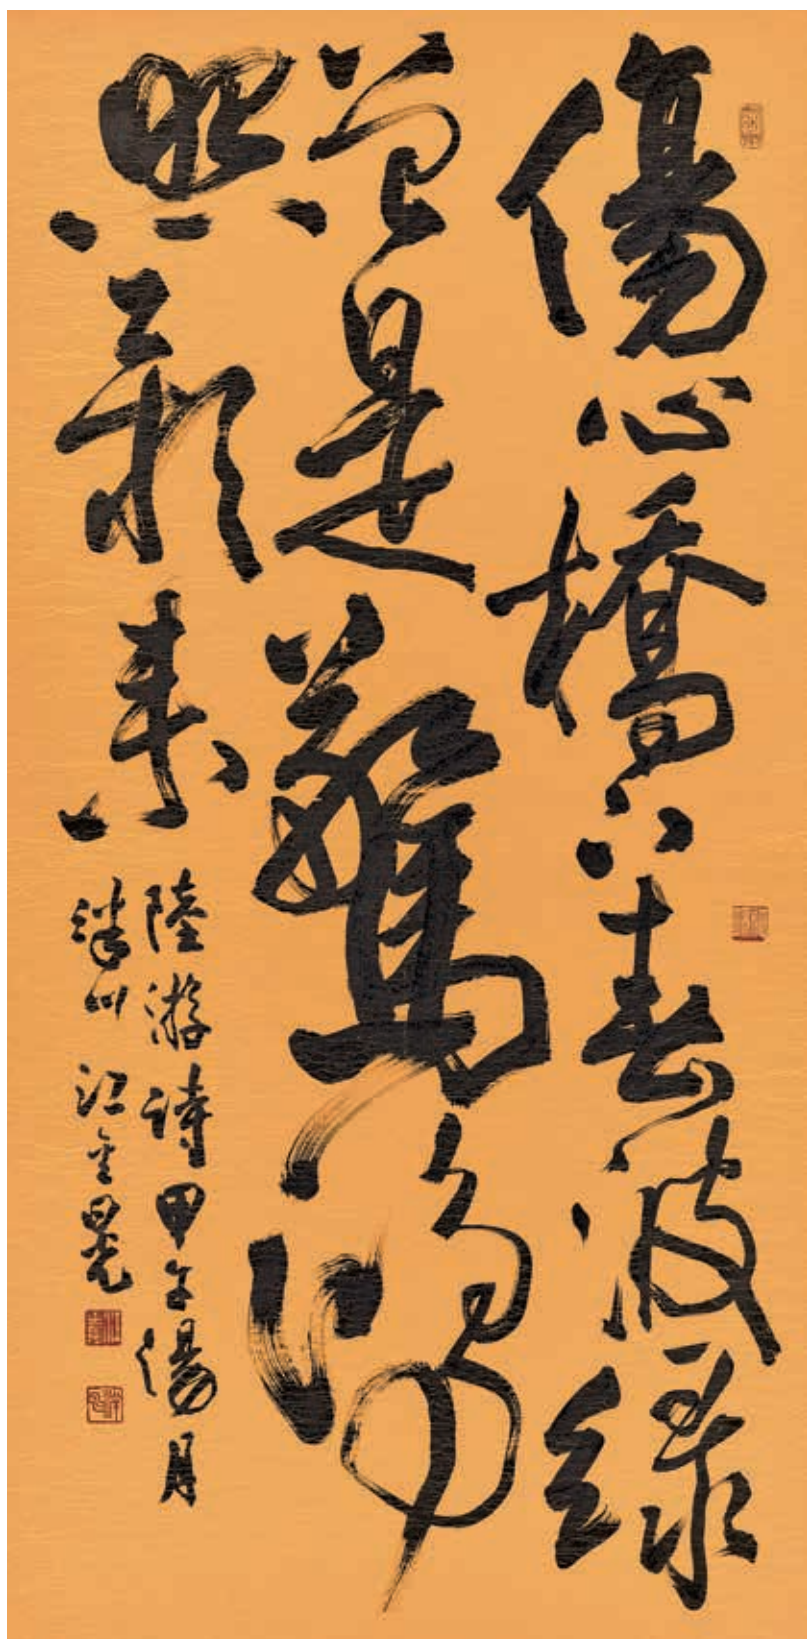 傷心橋下春波綠
曾是驚鴻
照影來
陸游詩甲午陽月
川江金晃